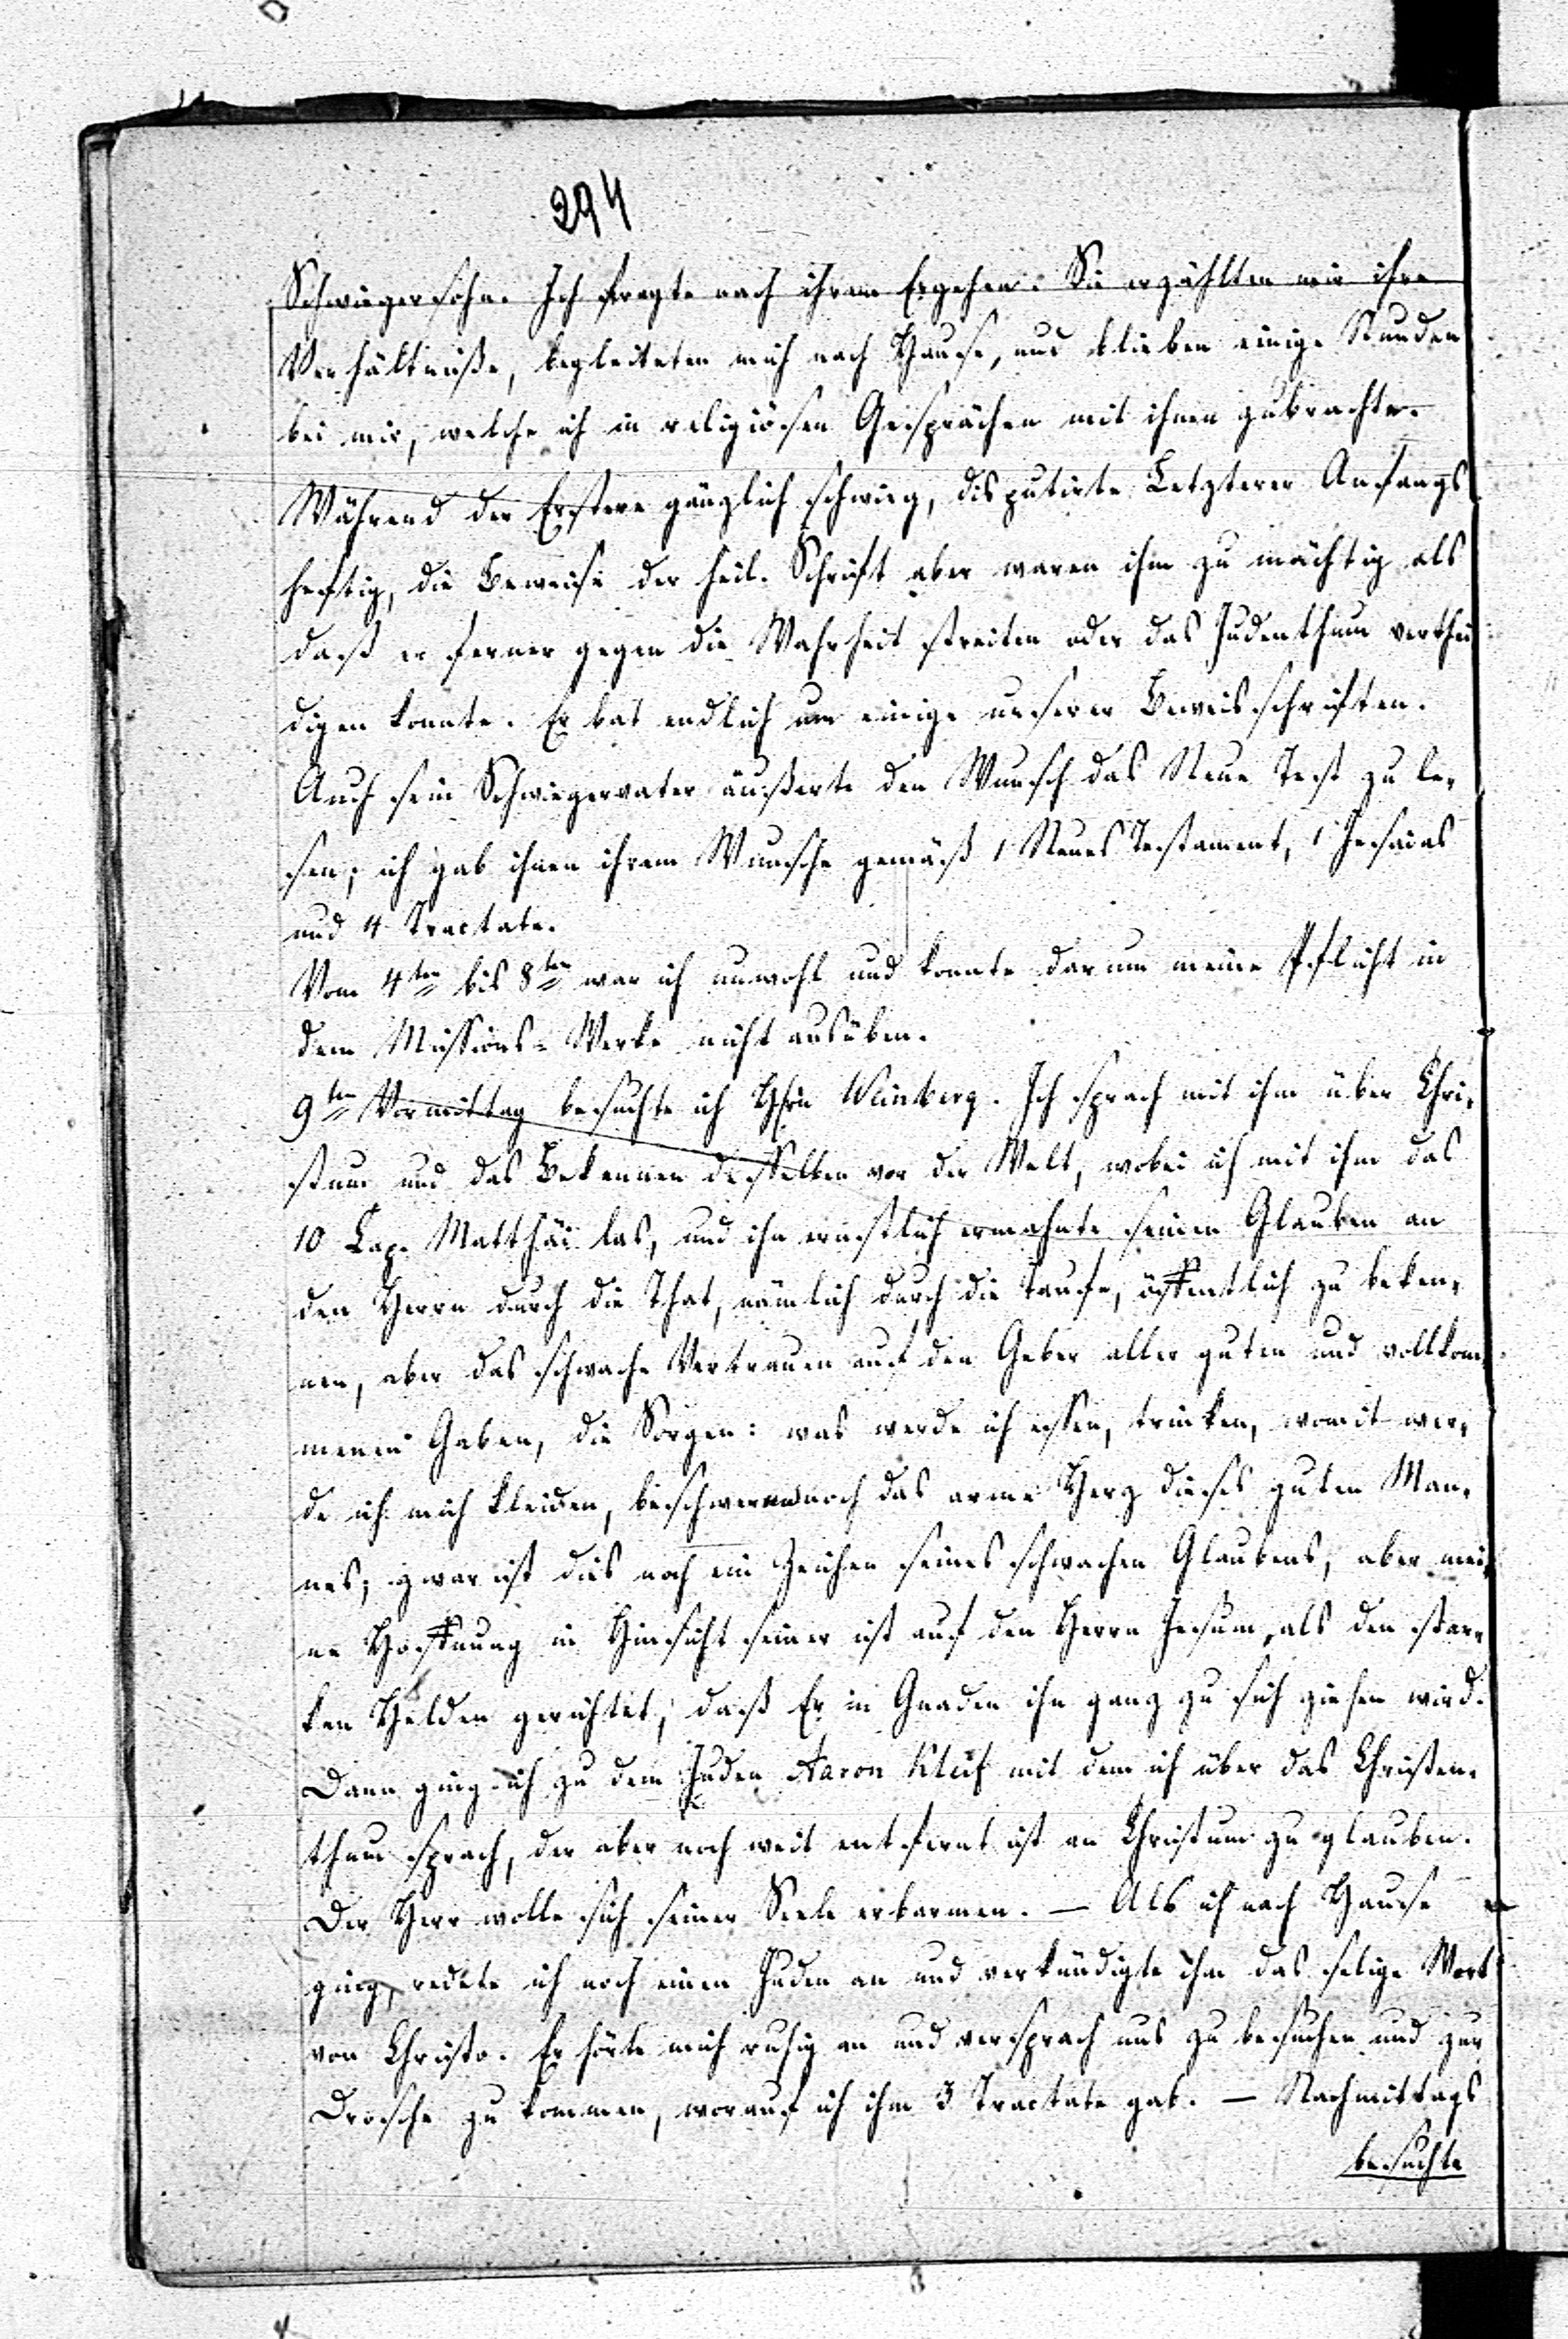 294
Schwiegersohn. Ich fragte nach ihrem Ergehen. Sie erzählten mir ihre
Verhältniße, begleiteten mich nach Hause, und blieben einige Stunden
bei mir, welche ich in religiösen Gesprächen mit ihnen zubrachte.
Während der Erstere gänzlich schwieg, disputirte Letzterer Anfangs
heftig, die Beweise der heil. Schrift aber waren ihm zu mächtig als
daß er ferner gegen die Wahrheit streiten oder das Judenthum verthei
digen konnte. Er bat endlich um einige unserer Beweisschriften.
Auch sein Schwiegervater äußerte den Wunsch das Neue Test zu le-
sen; ich gab ihnen ihrem Wunsche gemäß 1 Neues Testament, 1 Jesaias
und 4 Tractate.
Vom 4ten bis 8ten war ich unwohl und konnte darum meine Pflicht in
dem Missions-Werke nicht ausüben.
9ten Vormittag besuchte ich Hrn Weinberg. Ich sprach mit ihm über Chri-
stum und das Bekennen desselben vor der Welt, wobei ich mit ihm das
10 Cap. Matthäi las, und ihn ernstlich ermahnte seinen Glauben an
den Herrn durch die That, nämlich durch die Taufe, öffentlich zu beken-
nen, aber das schwache Vertrauen auf den Geber aller guten und vollkom-
menen Gaben, die Sorgen: was werde ich essen, trinken, womit wer-
de ich mich kleiden, beschweren noch das arme Herz dieses guten Man-
nes; zwar ist dies noch ein Zeichen seines schwachen Glaubens, aber mei-
ne Hoffnung in Hinsicht seiner ist auf den Herrn Jesum, als den star-
ken Helden gerichtet, daß Er in Gnaden ihn ganz zu sich ziehen wird.
Dann ging ich zu dem Juden Aaron mit dem ich über das Christen-
thum sprach, der aber noch weit entfernt ist an Christum zu glauben.
Der Herr wolle sich seiner Seele erbarmen. — Als ich nach Hause
ging, redete ich noch einen Juden an und verkündigte ihm das selige Wort
von Christo. Er hörte mich ruhig an und versprach uns zu besuchen und zur
Drosche zu kommen, worauf ich ihm 3 Tractate gab. — Nachmittags
besuchte